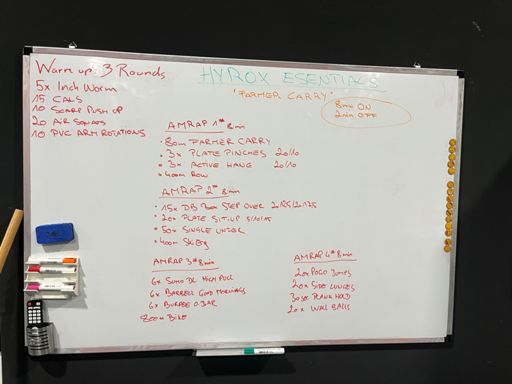 Warm up: 3 Rounds
5x Inch Worm
15 CALS
10 SCARP PUSH UP
20 AIR SQUATS
10 PVC ARM ROTATIONS
HYROX ESENTIALS
"FARMER CARRY"
8min ON
2min OFF
AMRAP 1# 8min
• 80m FARMER CARRY
• 3x PLATE PINCHES 20/10
• 3x ACTIVE HANG 20/10
• 400m ROW
AMRAP 2# 8min
• 15x DB Box STEP OVER
• 20x PLATE SIT-UP
• 50x SINGLE UNDER
• 400m SkiErg
AMRAP 3# 8min
6x SUMO DL HIGH PULL
6x BARBELL GOOD MORNINGS
6x BURPEE O.BAR
800m BIKE
AMRAP 4# 8min
20x POGO JUMPS
20x SIDE LUNGES
30sec PLANK HOLD
20x WALL BALLS